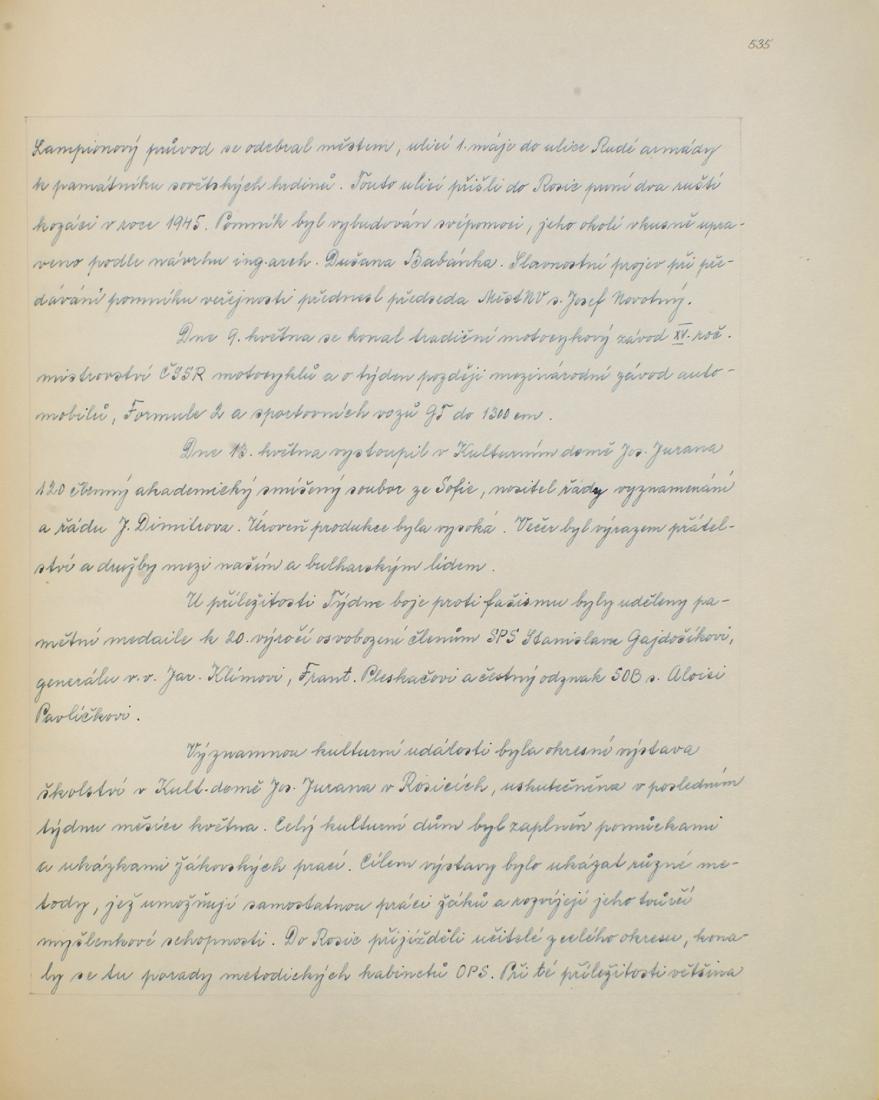 535
Lampionový průvod se odebral městem, ulicí 1. máje do ulice Rudé armády
k památníku sovětských hrdinů. Touto ulicí přišli do Rosic první dva ruští
kozáci v roce 1945. Pomník byl vybudován svépomocí, jeho okolí vkusně upra-
veno podle návrhu ing. arch. Dušana Babánka. Slavnostní projev při pře-
dávání pomníku veřejnosti přednesl předseda MěstNV s. Josef Novotný.
Dne 9. května se konal tradiční motocyklový závod XV. roč.
mistrovství ČSSR motocyklů a o týden později mezinárodní závod auto-
mobilů, Formule 2 a sportovních vozů GT do 1300 cm.
Dne 13. května vystoupil v Kulturním domě Jos. Jurana
120 členný akademický smíšený soubor ze Sofie, nositel řády vyznamenání
a řádu J. Dimitrova. Úroveň produkce byla vysoká. Večer byl výrazem přátel-
ství a družby mezi naším a bulharským lidem.
U příležitosti Týdne boje proti fašismu byly uděleny pa-
mětní medaile k 20. výročí osvobození členům SPS Stanislavu Gajdošíkovi,
generálu v.v. Jar. Klímovi, Frant. Pleskačovi a čestný odznak SOB s. Aloisi
Pavlíčkovi.
Významnou kulturní událostí byla okresní výstava
školství v Kult. domě Jos. Jurana v Rosicích, uskutečněna v posledním
týdnu měsíce května. Celý kulturní dům byl zaplněn pomůckami
a ukázkami žákovských prací. Cílem výstavy bylo ukázat různé me-
tody, jež umožňují samostatnou práci žáků a rozvíjejí jeho tvůrčí
myšlenkové schopnosti. Do Rosic přijížděli učitelé z celého okresu, kona-
ly se tu porady metodických kabinetů OPS. Při té příležitosti většina